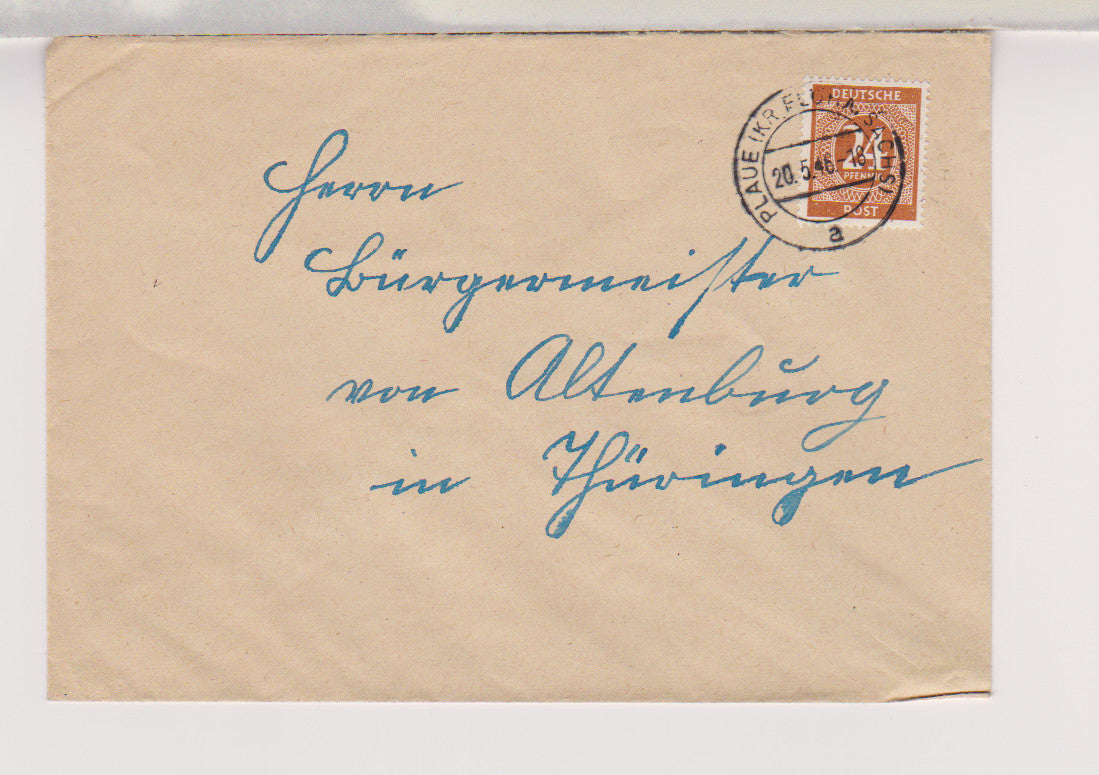 DEUTSCHE
24
PFENNIG
POST
PLAUE (KR. FLÖHA, SACHS)
20.5.46-18
a
Herrn
Bürgermeister
von Altenburg
in Thüringen